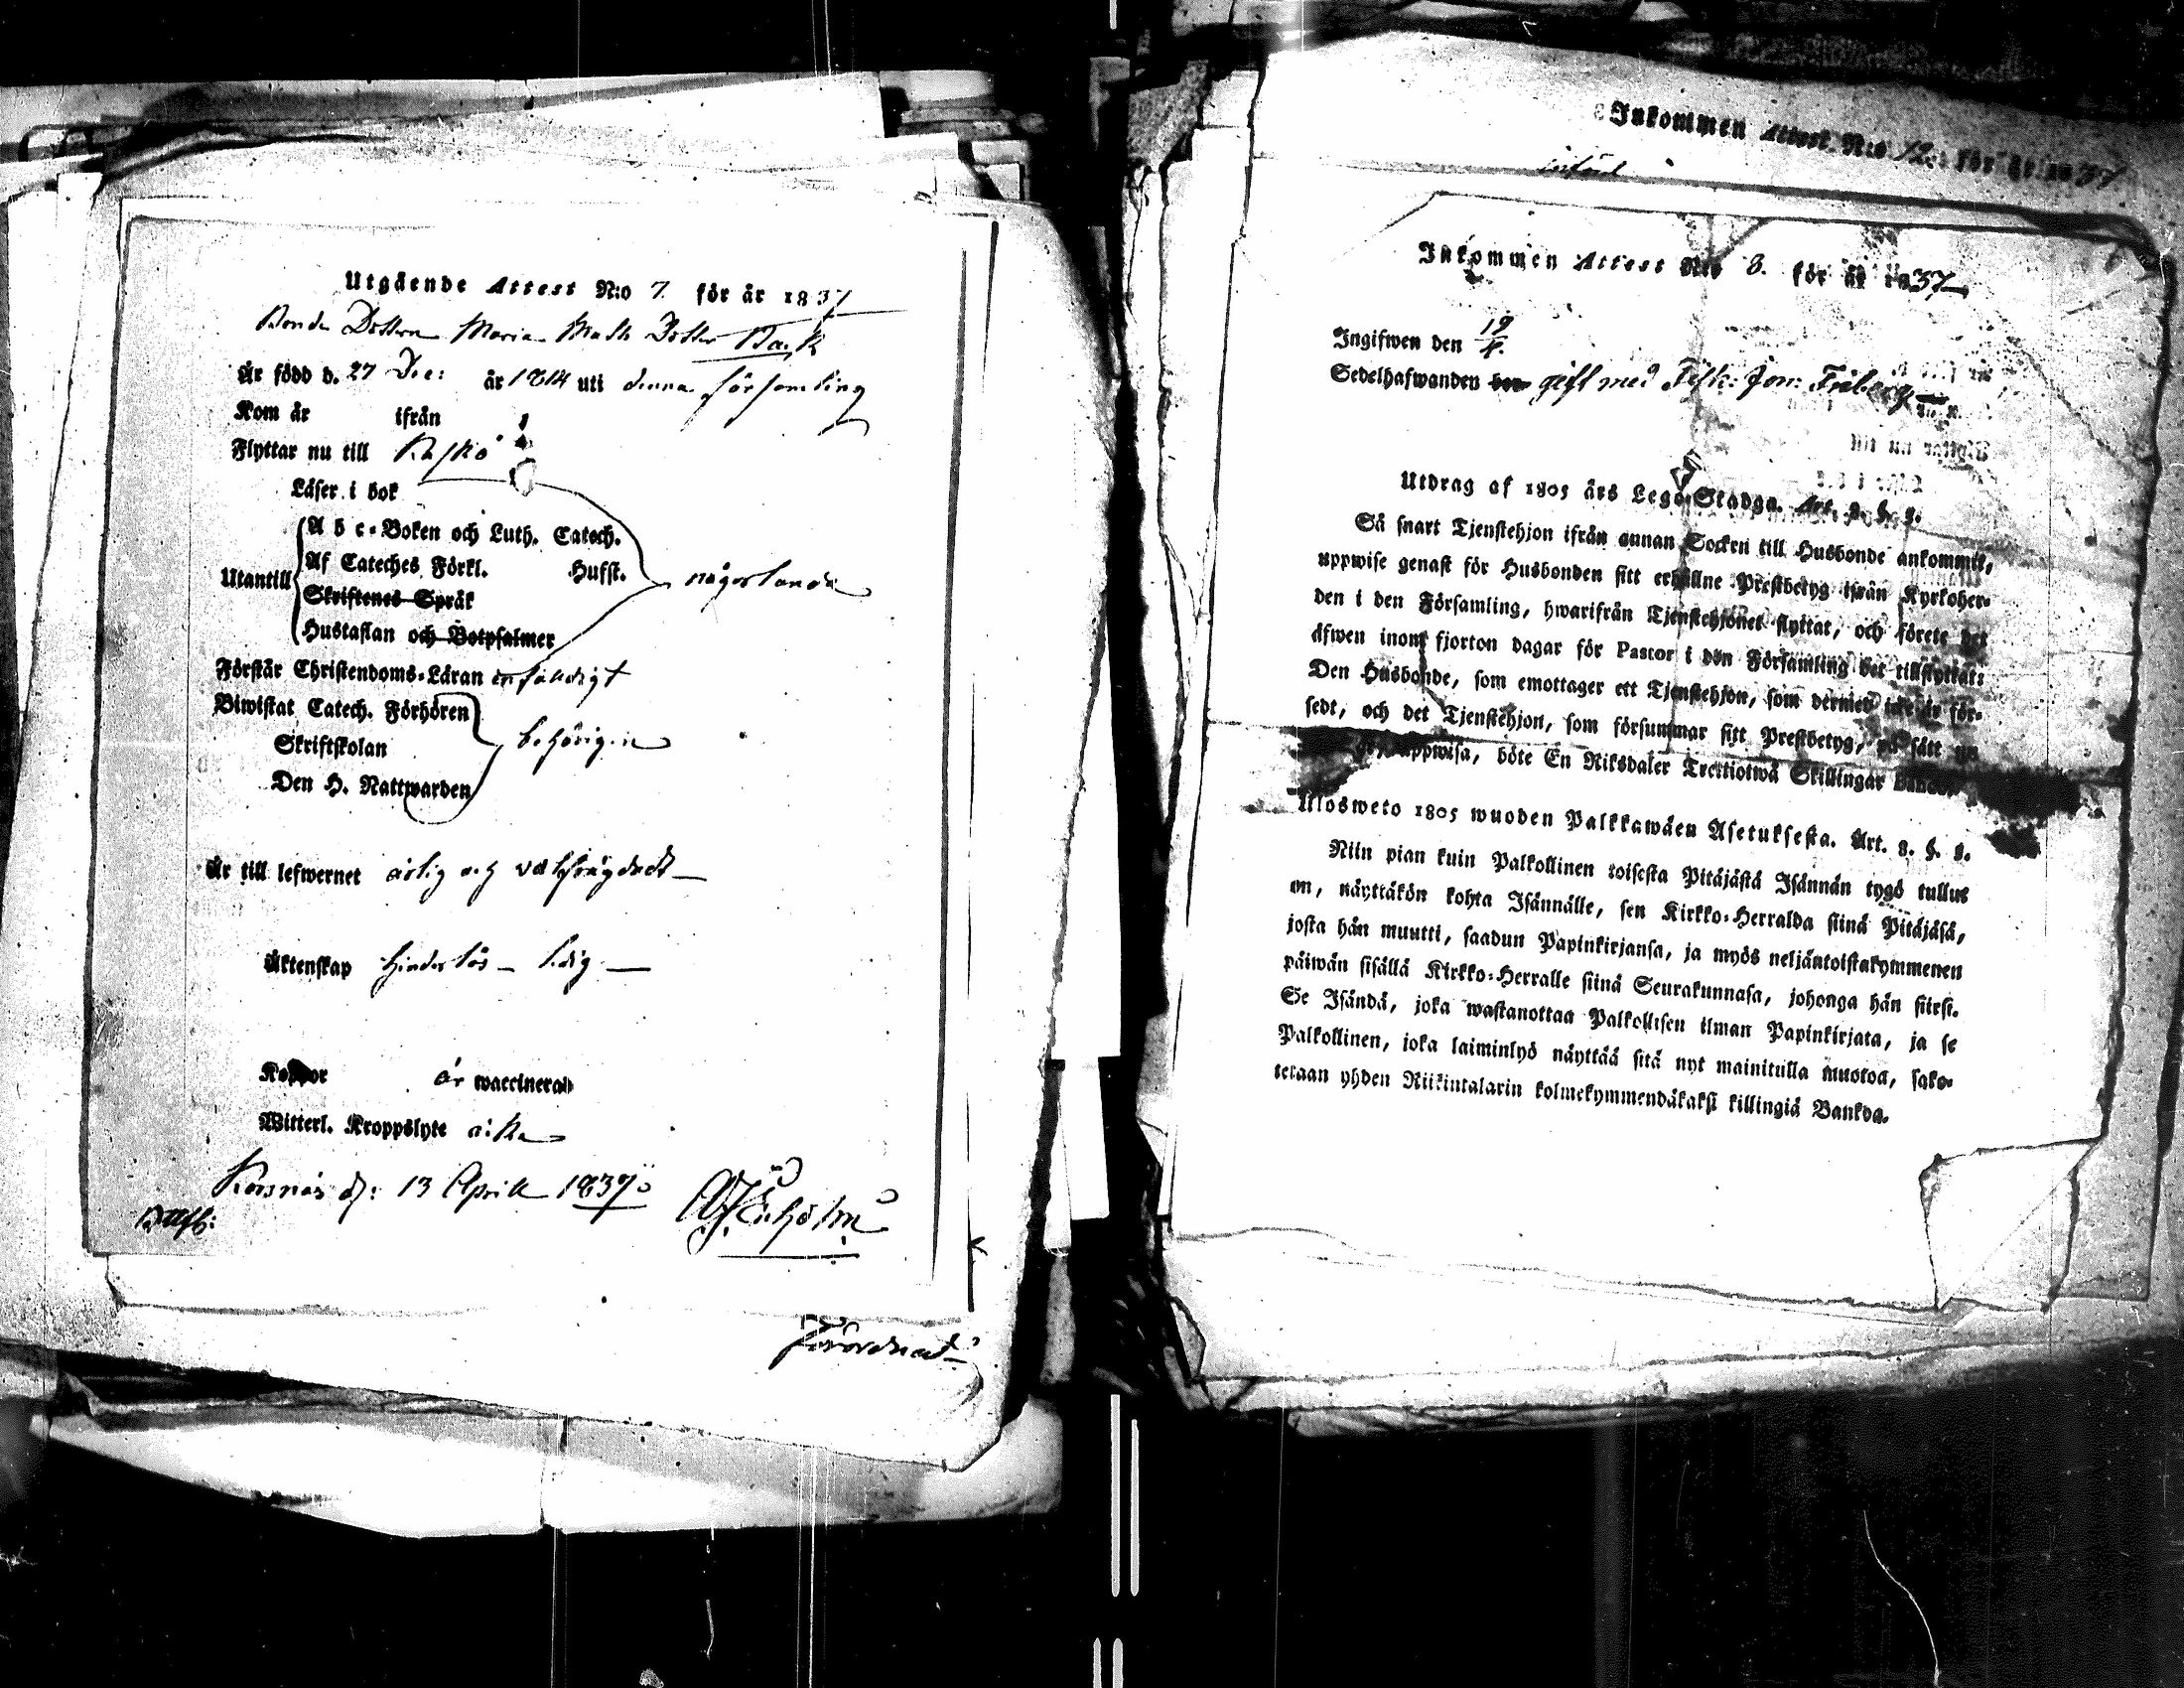 Utgående Attest N:o 7. för år 1837
Bonde Dottern Maria Math Dotter Back
Är född d. 27 Dec: år 1814 uti denna församling
Kom år ifrån
Flyttar nu till Kaskö
Läser i bok
A b c-Boken och Luth. Catech.
Af Cateches Förkl. Hufst.
Utantill någorlunda
Skriftenes Språk
Hustaflan och Botpsalmer
Förstår Christendoms-Läran enfaldigt
Biwistat Catech. Förhören
Skriftskolan behörigen
Den H. Nattwarden
Är till lefwernet ärlig och välfrägdad
Äktenskap hinderlös – ledig
Koppor är waccinerad
Witterl. Kroppslyte
Korsnäs d: 13 April 1837
Förordnad
Inkommen Attest. N:o 12. för år 1837
införd
Inkommen Attest N:o 8. för år 1837
Ingifwen den 19/4.
Sedelhafwanden gift med Fisk: Jon: Friberg
Utdrag af 1805 års Lego-Stadga. Art. 2. §. 2.
Så snart Tjenstehjon ifrån annan Sockn till Husbonde ankommit,
uppwise genast för Husbonden sitt erhållne Prestbetyg ifrån Kyrkoher-
den i den Församling, hwarifrån Tjenstehjonet flyttat, och förete det
äfwen inom fjorton dagar för Pastor i den Församling det tillflyttat:
Den Husbonde, som emottager ett Tjenstehjon, som dermed icke är för-
sedt, och det Tjenstehjon, som försummar sitt Prestbetyg, på sätt nu
uppwisa, böte En Riksdaler Trettiotwå Skillingar Banco.
Ulosweto 1805 wuoden Palkkawäen Asetuksesta. Art. 2. §. 2.
Niin pian kuin Palkollinen toisesta Pitäjästä Isännän tygö tullut
on, näyttäkön kohta Isännälle, sen Kirkko-Herralda siinä Pitäjäsä,
josta hän muutti, saadun Papinkirjansa, ja myös neljäntoistakymmenen
päiwän sisällä Kirkko-Herralle siinä Seurakunnasa, johonga hän siirsi.
Se Isändä, joka wastanottaa Palkollisen ilman Papinkirjata, ja se
Palkollinen, joka laiminlyö näyttää sitä nyt mainitulla muotoa, sako-
tetaan yhden Riikintalarin kolmekymmendäkaksi killingiä Bankos.